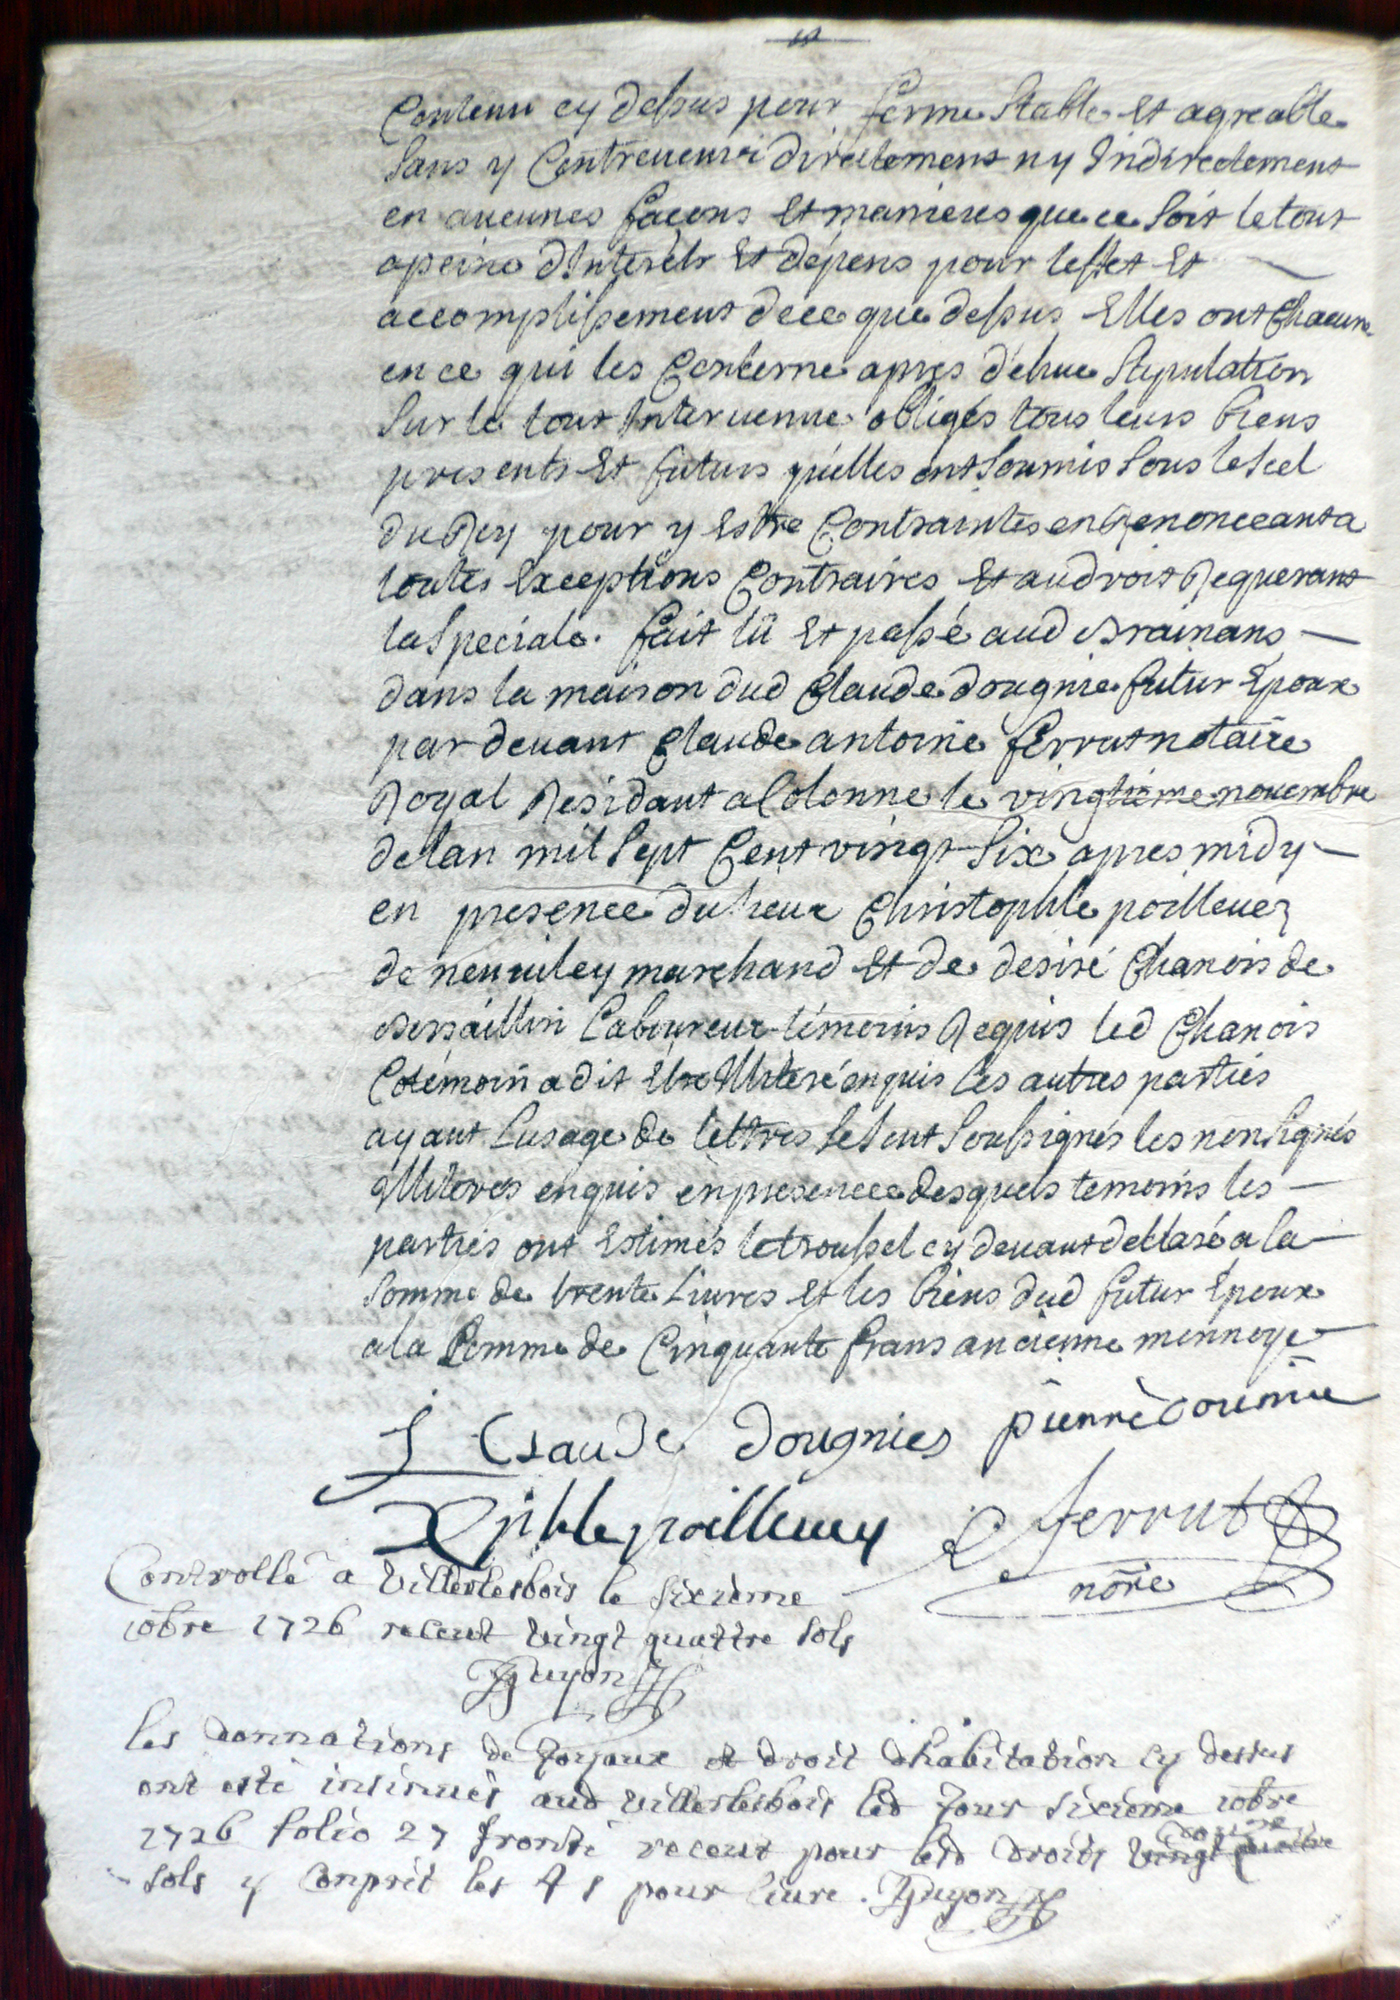 Contenu cy dessus pour ferme stable et agreable
sans y Contrevenir directement ny Indirectement
en aucunes façons et manieres que ce soit le tout
a peine d'Interests et dépens pour leffet et
accomplissement de ce que dessus Elles ont Chacune
en ce qui les Concerne apres dehue stipulation
sur le tout Intervenue obligés tous leurs biens
presents et futurs qu'elles ont soumis sous le scel
du Roy pour y Estre Contraintes en Renonceant a
toutes Exceptions Contraires et au droit Requerant
la speciale. fait lû et passé aud Brainans
dans la maison dud Claude dougnie futur Epoux
par devant Claude antoine ferrut notaire
Royal Residant a Colonne le vingtième novembre
de lan mil sept Cent vingt six apres midy
en presence du sieur Christophle poillevey
de neuviley marchand et de desiré Chanois de
Bersaillin Laboureur témoins Requis led Chanois
Cotémoin a dit Etre Illiteré enquis les autres parties
ayant Lusage de lettres se sont soussignés les non signés
Illiterés enquis en presence desquels temoins les
parties ont Estimés le troussel cy devant declaré a la
somme de trente Livres et les biens dud futur Epoux
a la somme de Cinquante frans ancienne monnoye
J Claude dougnies pierre
Xphle poillevey ferrut
nore
Controllé a Villerlesbois le sixième
10bre 1726 receut vingt quattre sols
Guyon
les donnations de Joyaux et droit dhabitation cy dessus
ont esté insinués aud Villerlesbois led Jour sixieme 10bre
1726 folio 27 receut pour lesd droits
sols y Conprit les 4 s pour livre. Guyon